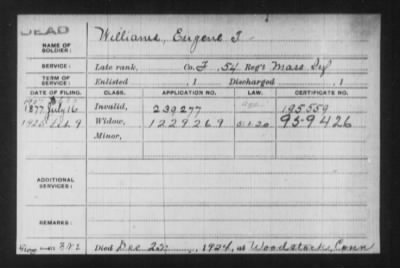 DEAD
NAME OF SOLDIER: Williams, Eugene
SERVICE: Late rank, Co. F, 54 Reg't Mass Inf
TERM OF SERVICE: Enlisted , 1 Discharged , 1
DATE OF FILING. CLASS. APPLICATION NO. LAW. CERTIFICATE NO.
1877 July 16 Invalid, 239277 195559
Feb. 9 Widow, 1229269 959426
Minor,
ADDITIONAL SERVICES:
REMARKS:
Died Dec 1924, at Woodstock, Conn